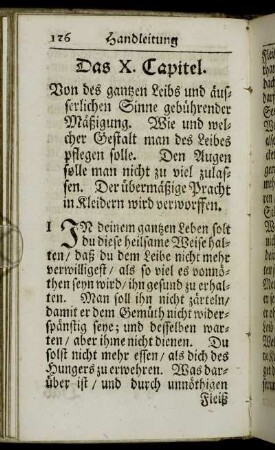 126 Handleitung
Das X. Capitel.
Von des gantzen Leibs und äus-
serlichen Sinne gebührender
Mäßigung. Wie und wel-
cher Gestalt man des Leibes
pflegen solle. Den Augen
solle man nicht zu viel zulas-
sen. Der übermäßige Pracht
in Kleidern wird verworffen.
1 IN deinem gantzen Leben solt
du diese heilsame Weise hal-
ten/ daß du dem Leibe nicht mehr
verwilligest/ als so viel es vonnö-
then seyn wird/ ihn gesund zu erhal-
ten. Man soll ihn nicht zärteln/
damit er dem Gemüth nicht wider-
spänstig seye; und desselben war-
ten/ aber ihme nicht dienen. Du
solst nicht mehr essen/ als dich des
Hungers zu erwehren. Was dar-
über ist/ und durch unnöthigen
Fleiß